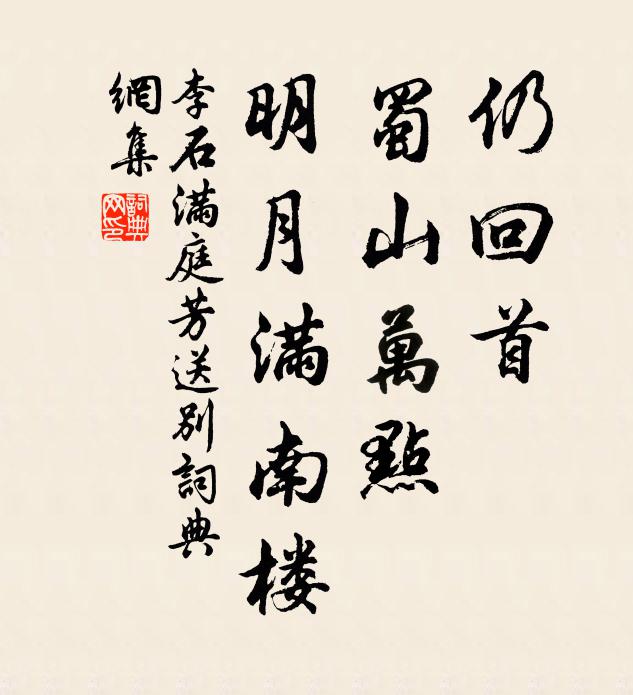 仍回首
蜀山萬點
明月满南楼
李石满庭芳送别詞典
網集
詞典
网印